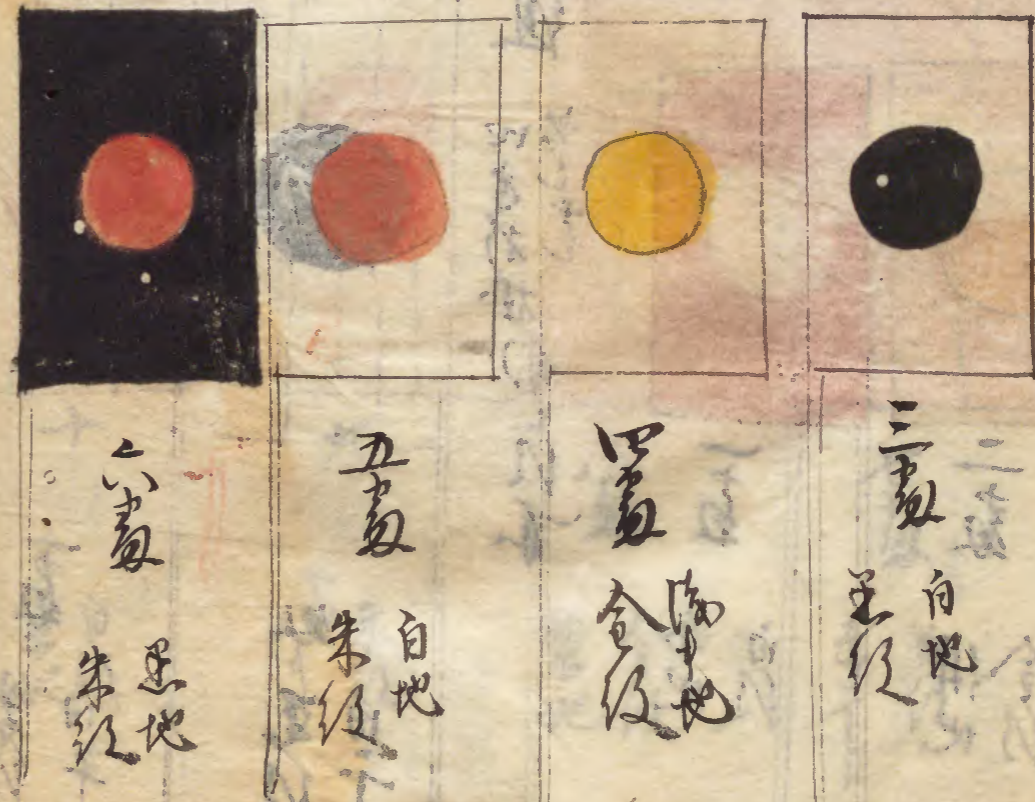 三番
白地
黒紋
四番
地
金紋
五番
白地
朱紋
六番
黒地
朱紋